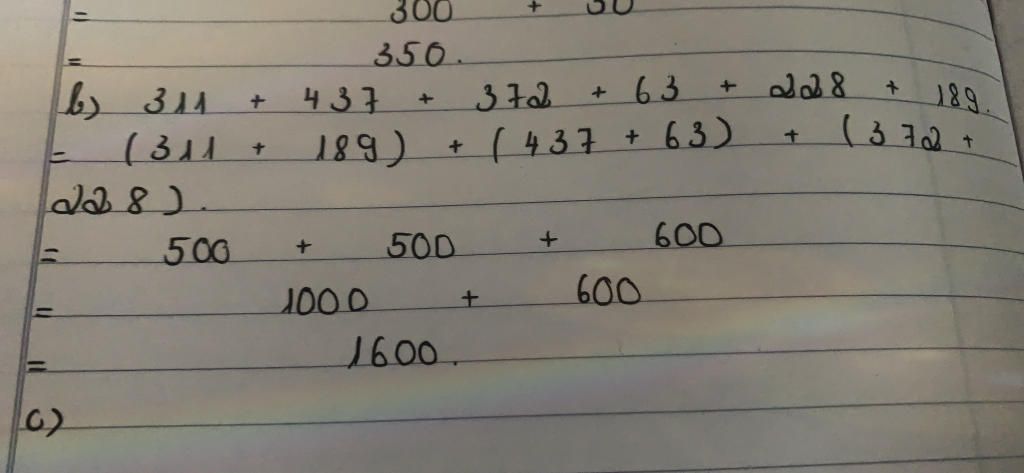 = 300 + 50
= 350.
b) 311 + 437 + 372 + 63 + 228 + 189.
= (311 + 189) + (437 + 63) + (372 +
228).
= 500 + 500 + 600
= 1000 + 600
= 1600.
c)